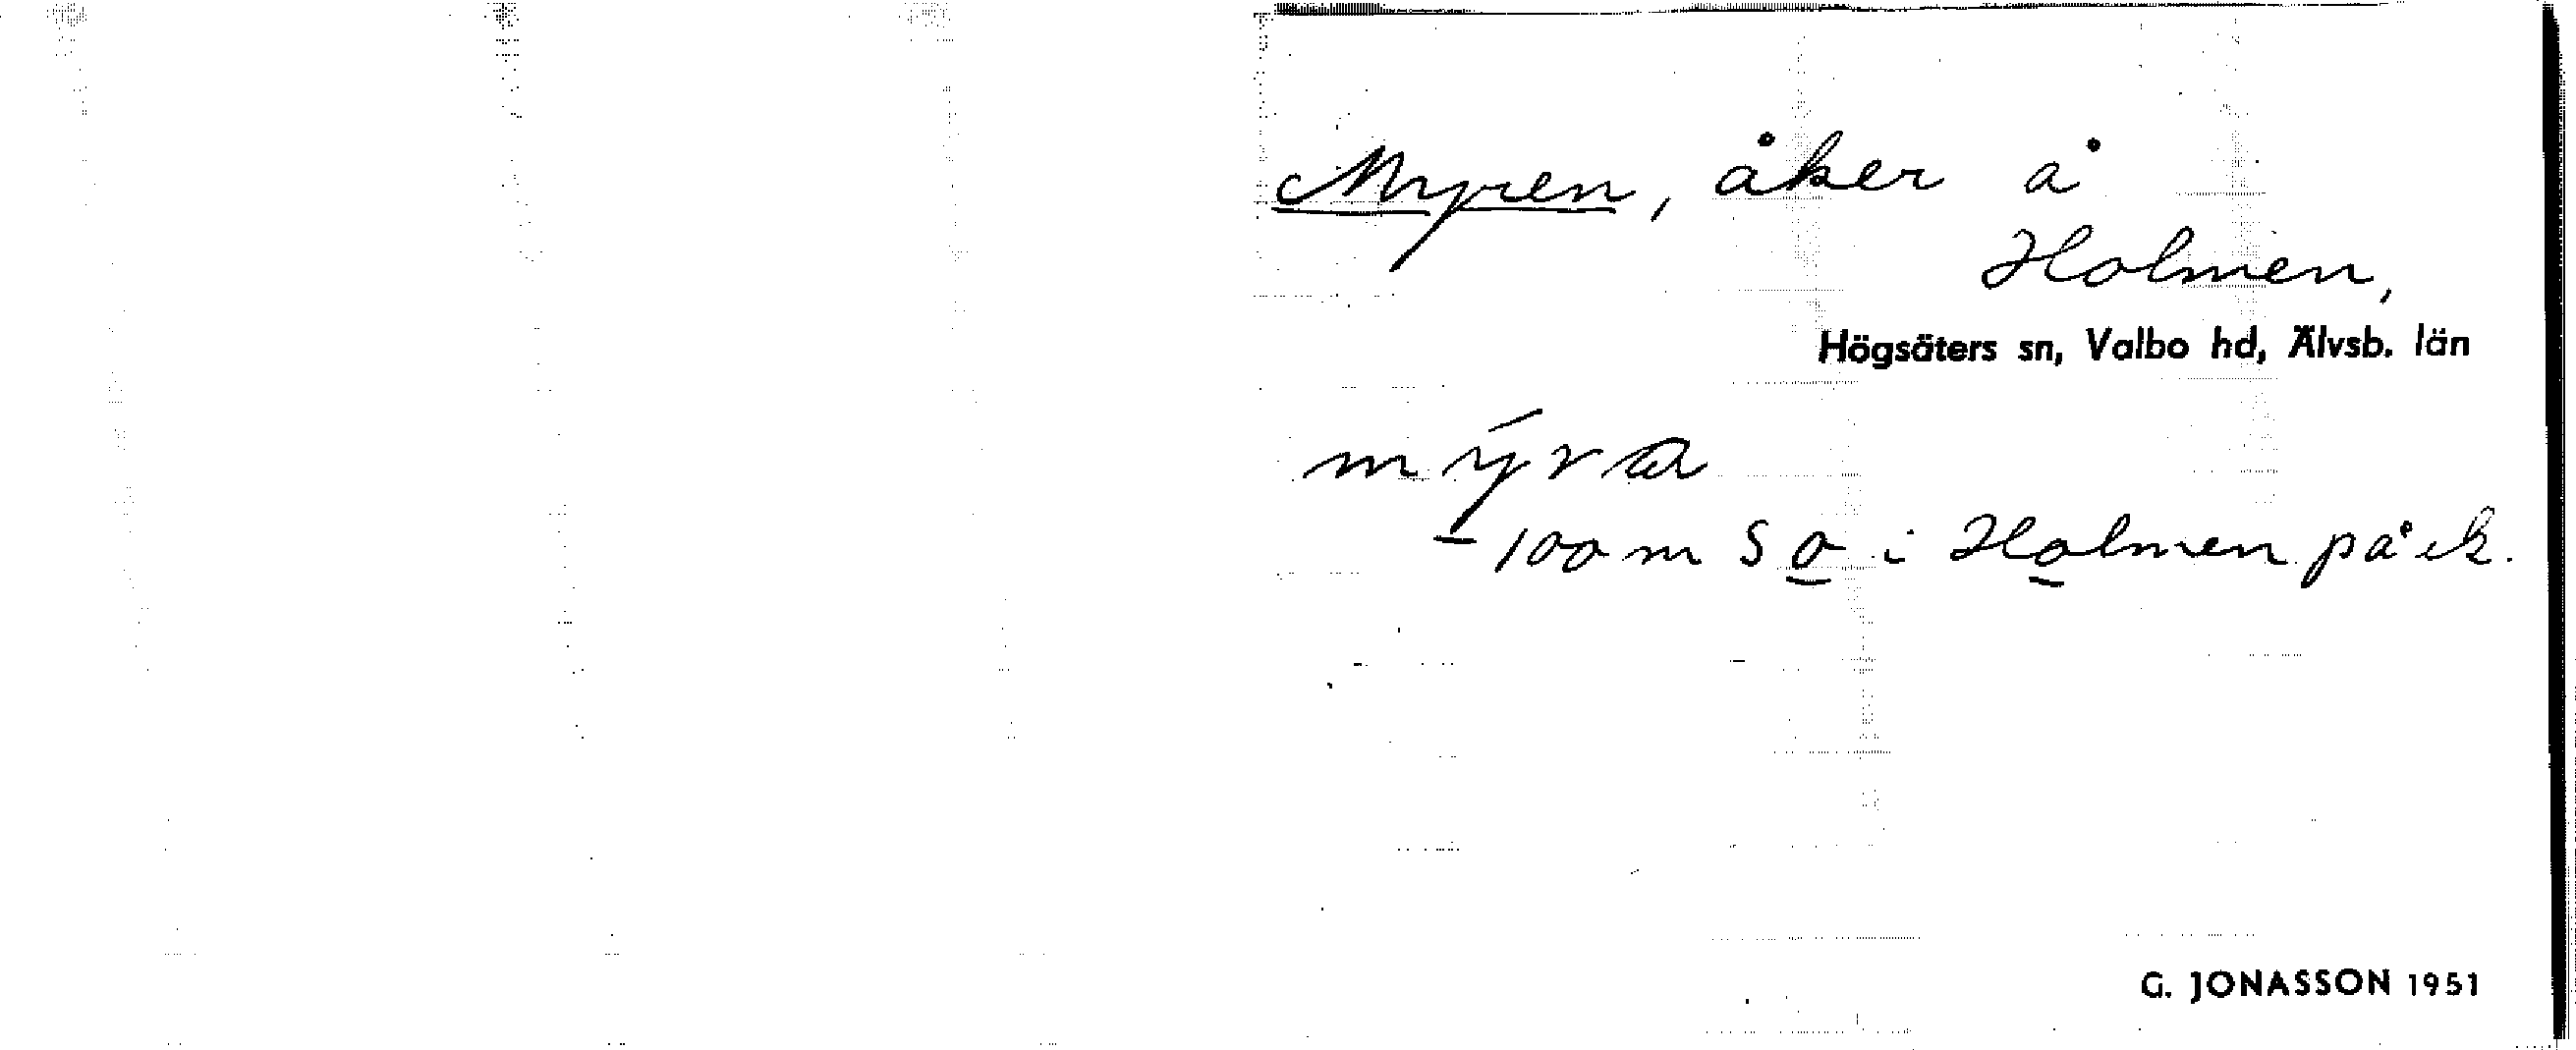 Myren, åker å
Holmen,
Högsäters sn, Valbo hd, Älvsb. län
mýra
– 100 m S o i Holmen på ek.
G. JONASSON 1951